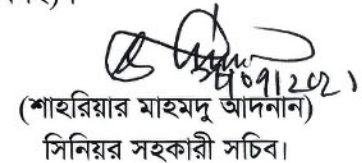 (শাহরিয়ার মাহমদু আদনান)
সিনিয়র সহকারী সচিব।